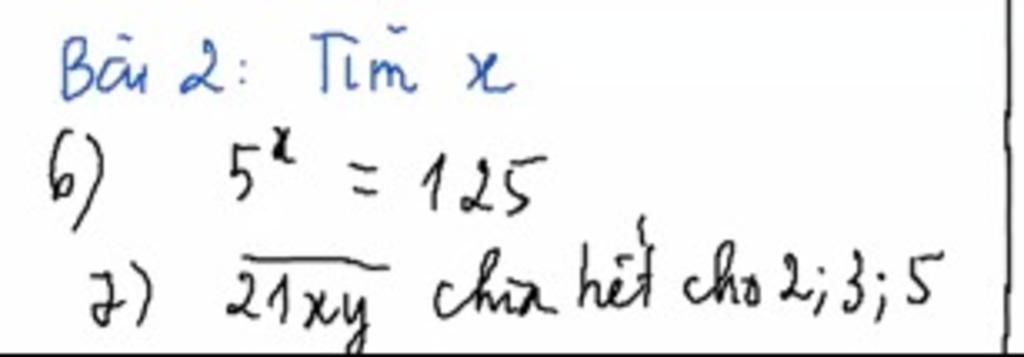 Bài 2: Tìm x
6) 5ˣ = 125
7) \overline{21xy} chia hết cho 2; 3; 5